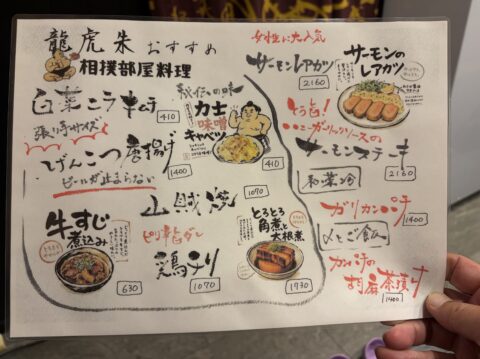 龍虎朱 おすすめ
相撲部屋料理
白菜ニラキムチ
410
張り手サイズ
げんこつ唐揚げ
1400
ビールが止まらない
牛すじ
煮込み
630
秘伝の味
力士
味噌
キャベツ
410
山賊焼
1070
ピリ辛ガレ
鶏チリ
1070
とろとろ
角煮と
大根煮
1930
女性に大人気
サーモンレアカツ
2160
サーモンの
レアカツ
とろ旨!
ハニーガーリックソースの
サーモンステーキ
2160
和菜冷
ガリカンパチ
1400
〆とご飯
カンパチの
胡麻茶漬け
1400